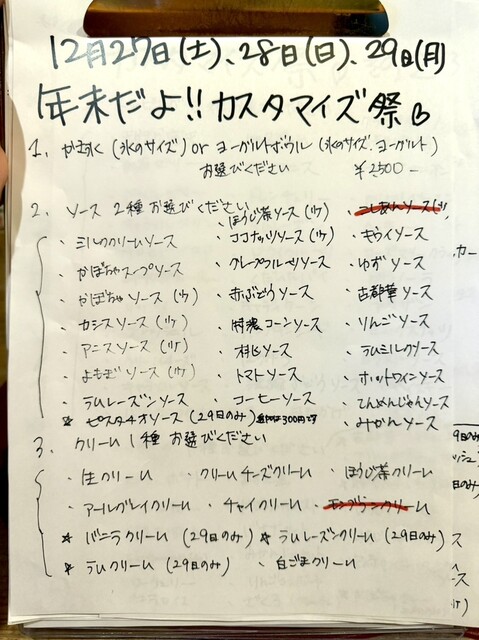 12月27日(土)、28日(日)、29日(月)
年末だよ!! カスタマイズ祭
1. かき氷 (氷のサイズ) or ヨーグルトボウル (氷のサイズ、ヨーグルト)
お選びください ¥2500-
2. ソース 2種お選びください
・ほうじ茶ソース(ツケ) ・こしあんソース(ツ
・ミルククリームソース ・ココナッツソース(ツケ) ・キウイソース
・かぼちゃスープソース ・グレープフルーツソース ・ゆずソース
・かぼちゃソース(ツケ) ・赤ぶどうソース ・古都華ソース
・カシスソース(ツケ) ・特濃コーンソース ・りんごソース
・アニスソース(ツケ) ・桃ソース ・ラムミルクソース
・よもぎソース(ツケ) ・トマトソース ・ホットワインソース
・ラムレーズンソース ・コーヒーソース ・てんめんじゃんソース
★ピスタチオソース(29日のみ) ・みかんソース
3. クリーム 1種お選びください
・生クリーム ・クリームチーズクリーム ・ほうじ茶クリーム
・アールグレイクリーム ・チャイクリーム ・モンブランクリーム
★バニラクリーム (29日のみ) ★ラムレーズンクリーム (29日のみ)
★ラムクリーム (29日のみ) ・白ごまクリーム